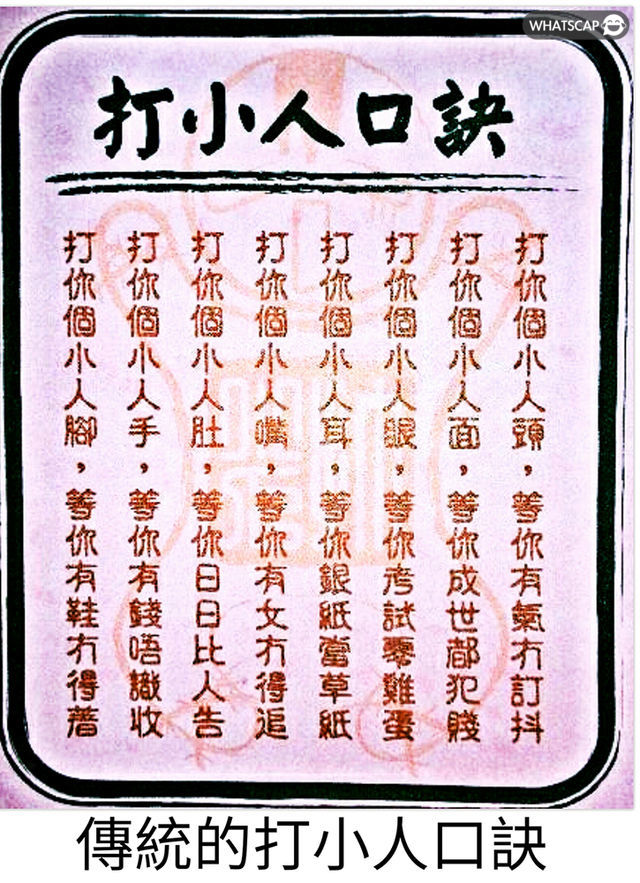 WHATSCAP
打小人口訣
打你個小人頭，等你有氣冇訂抖
打你個小人面，等你成世都犯賤
打你個小人眼，等你考試零雞蛋
打你個小人耳，等你銀紙當草紙
打你個小人嘴，等你有女冇得追
打你個小人肚，等你日日比人告
打你個小人手，等你有錢唔識收
打你個小人腳，等你有鞋冇得着
傳統的打小人口訣